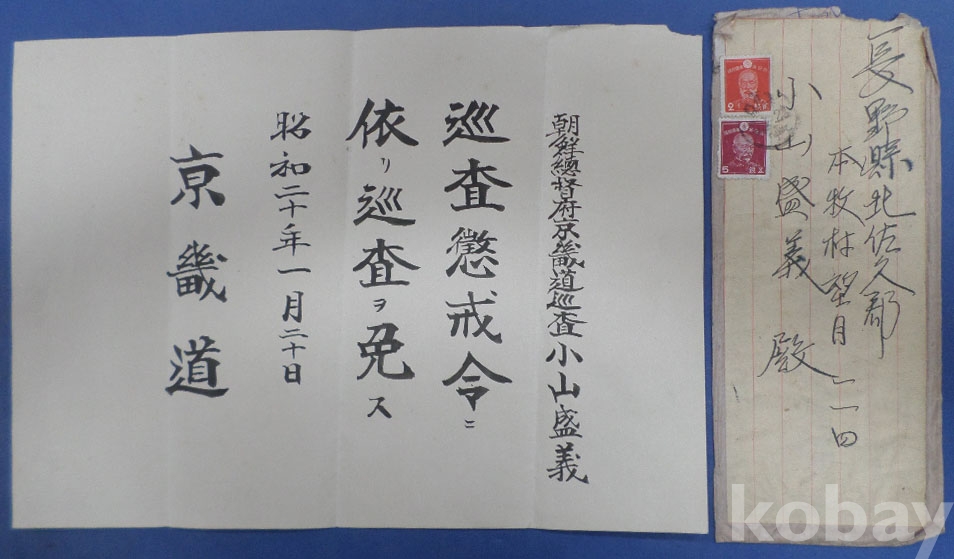 朝鮮總督府京畿道巡査小山盛義
巡査懲戒令ニ
依リ巡査ヲ免ス
昭和二十年一月二十日
京畿道
長野縣北佐久郡
本牧村望月一一四
小山盛義殿
5
kobay